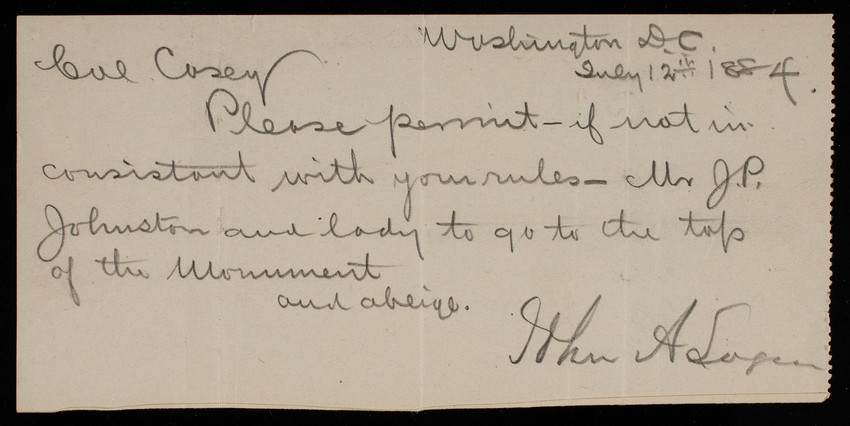 Washington D.C.
July 12th 1884.
Col Casey
Please permit - if not in
consistant with your rules - Mr J.P.
Johnston and lady to go to the top
of the Monument
and abeige.
John A Logan